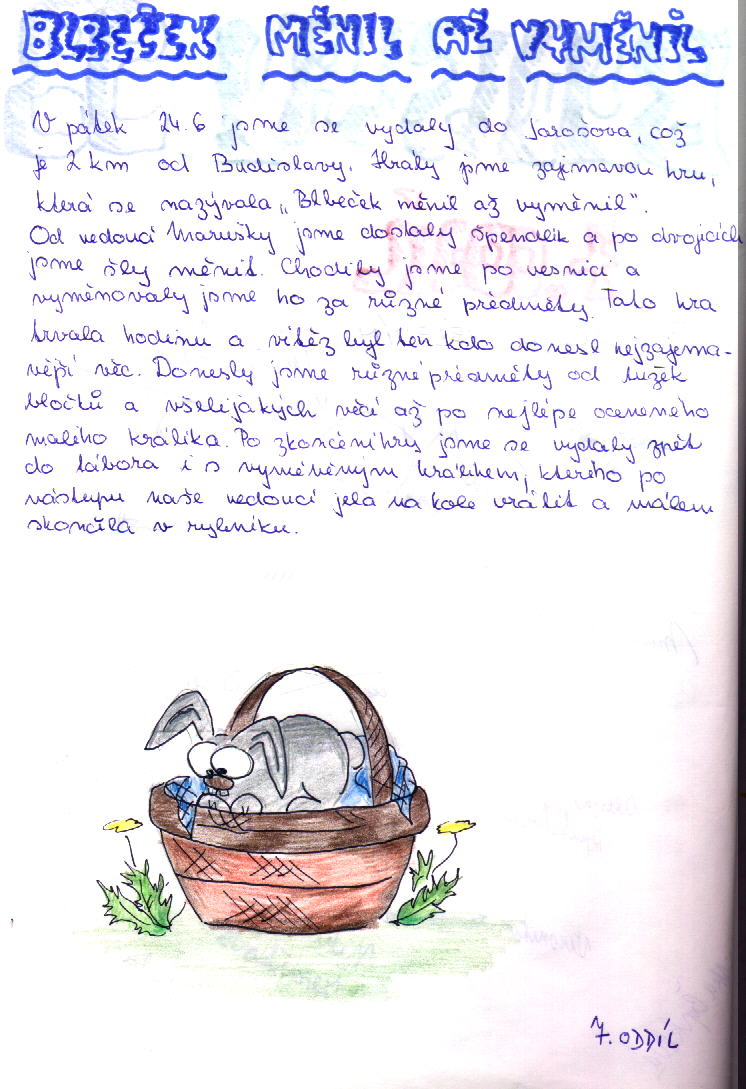 BLBEČEK MĚNIL AŽ VYMĚNIL
V pátek 24.6 jsme se vydaly do Jarošova, což
je 2 km od Budislavy. Hrály jsme zajímavou hru,
která se nazývala „Blbeček měnil až vyměnil".
Od vedoucí Marušky jsme dostaly špendlík a po dvojicích
jsme šly měnit. Chodily jsme po vesnici a
vyměnovaly jsme ho za různé předměty. Tato hra
trvala hodinu a vítěz byl ten kdo donesl nejzajema-
vější věc. Donesly jsme různé předměty od tužek
bločků a všelijakých věcí až po nejlépe oceneného
malího králíka. Po zkončení hry jsme se vydaly zpět
do tábora i s vyměněným králíkem, kterího po
nástupu naše vedoucí jela na kole vrátit a málem
skončila v rybníku.
7. ODDÍL